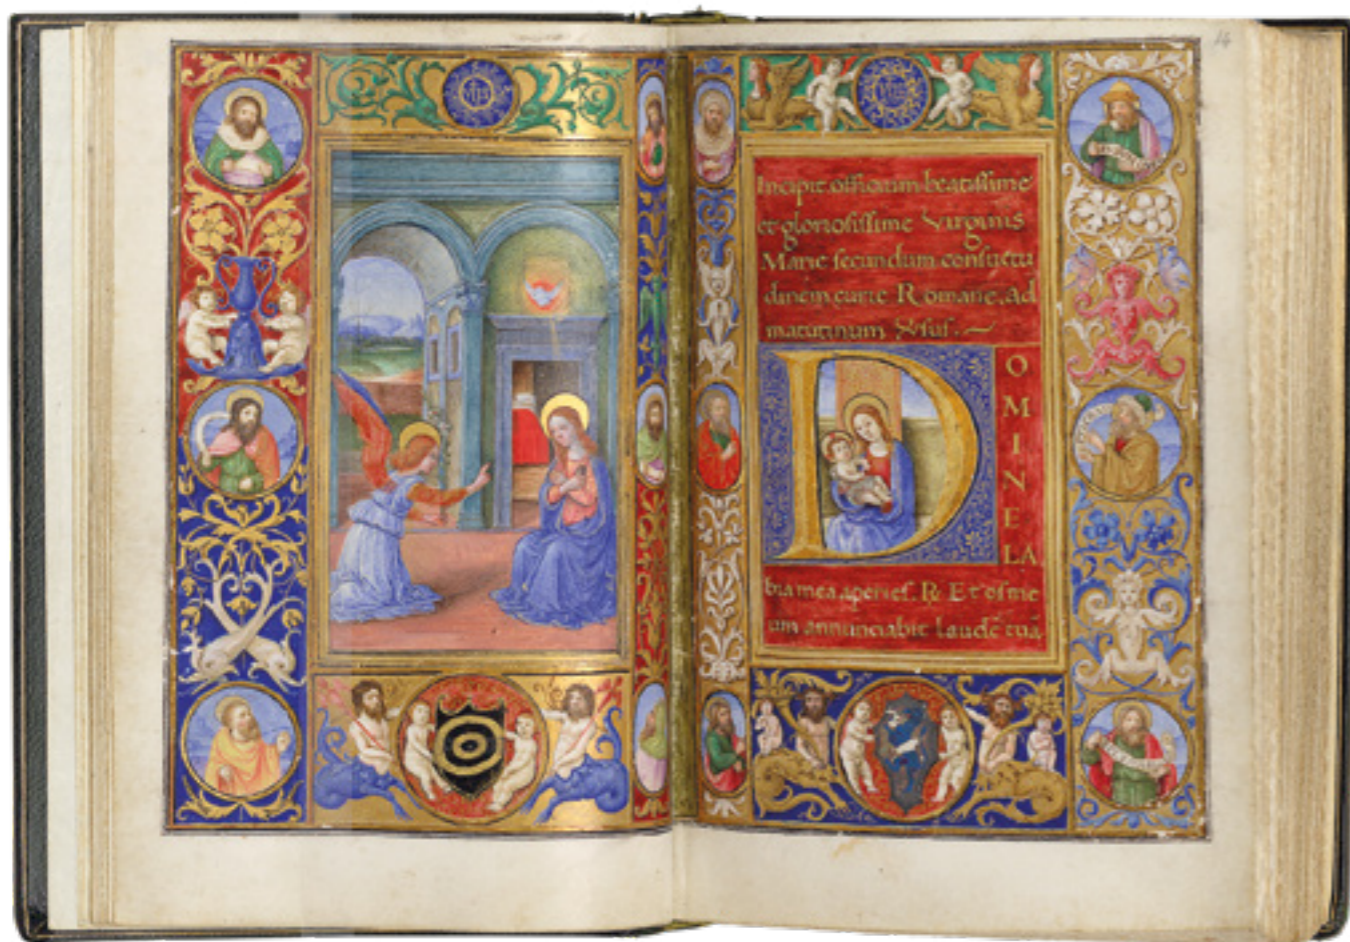 yhs
yhs
14
Incipit officium beatissime
et gloriosissime Virginis
Marie secundum consuetu
dinem curie Romane. ad
matutinum
D
O
M
I
N
E
LA
bia mea aperies. R Et os me
um annunciabit laudē tuā